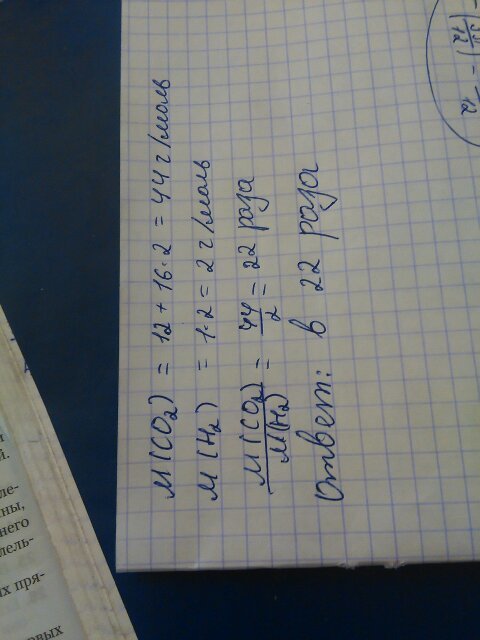 M(CO₂) = 12 + 16·2 = 44 г/моль
M(H₂) = 1·2 = 2 г/моль
M(CO₂)/M(H₂) = 44/2 = 22 раза
Ответ: в 22 раза
12
ле-
ны,
него
лель-
их пря-
рвых